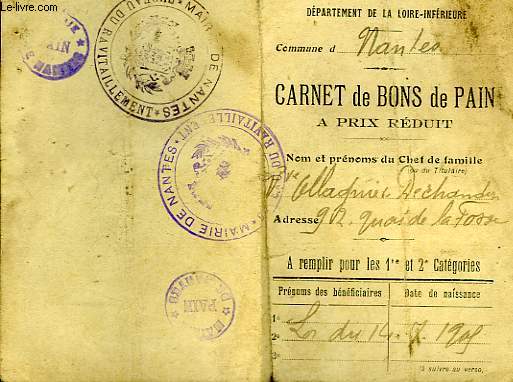 DÉPARTEMENT DE LA LOIRE-INFÉRIEURE
Commune d Nantes
CARNET de BONS de PAIN
A PRIX RÉDUIT
Nom et prénoms du Chef de famille
(ou du Titulaire)
Adresse 92 quai de la Fosse
A remplir pour les 1re et 2e Catégories
Prénoms des bénéficiaires Date de naissance
1° Loi du 14. 7. 1905
2°
3°
à suivre au verso.
MAIRIE DE NANTES * BUREAU DU RAVITAILLEMENT *
MAIRIE DE NANTES * BUREAU DU RAVITAILLEMENT *
PAIN
NANTES
PAIN